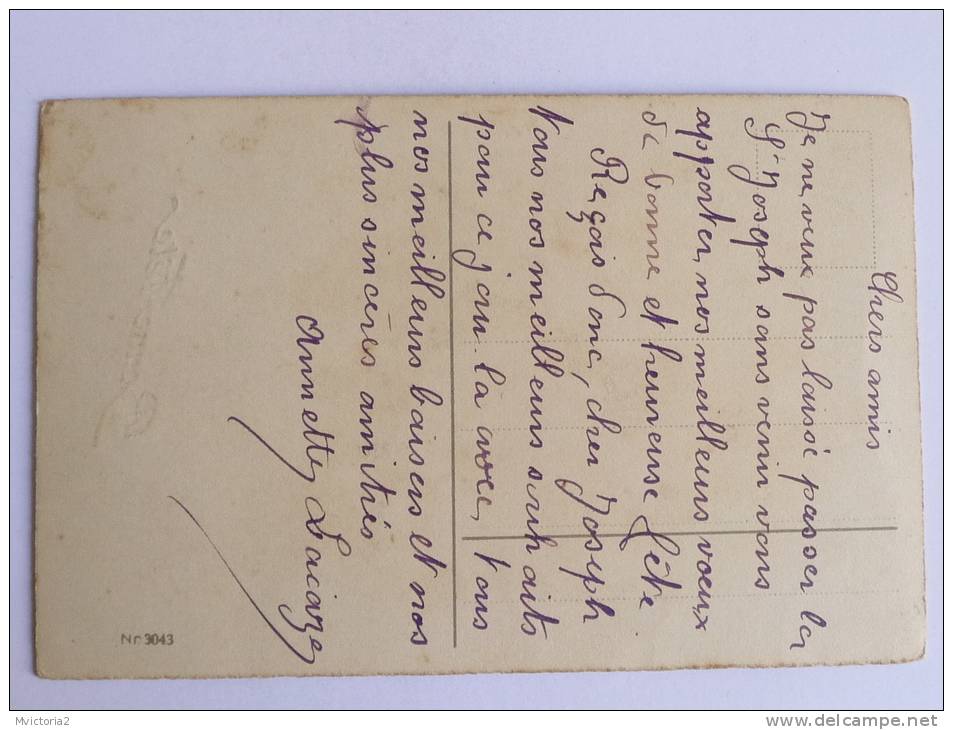 Chers amis
Je ne veux pas laissé passer la
St Joseph sans venir vous
apporter, nos meilleurs voeux
de bonne et heureuse fête
Reçois donc, cher Joseph
tous nos meilleurs souhaits
pour ce jour-là avec, tous
nos meilleurs baisers et nos
plus sincères amitiés
Annette Lacaze
Nr 3043
Mvictoria2
delcampe.net